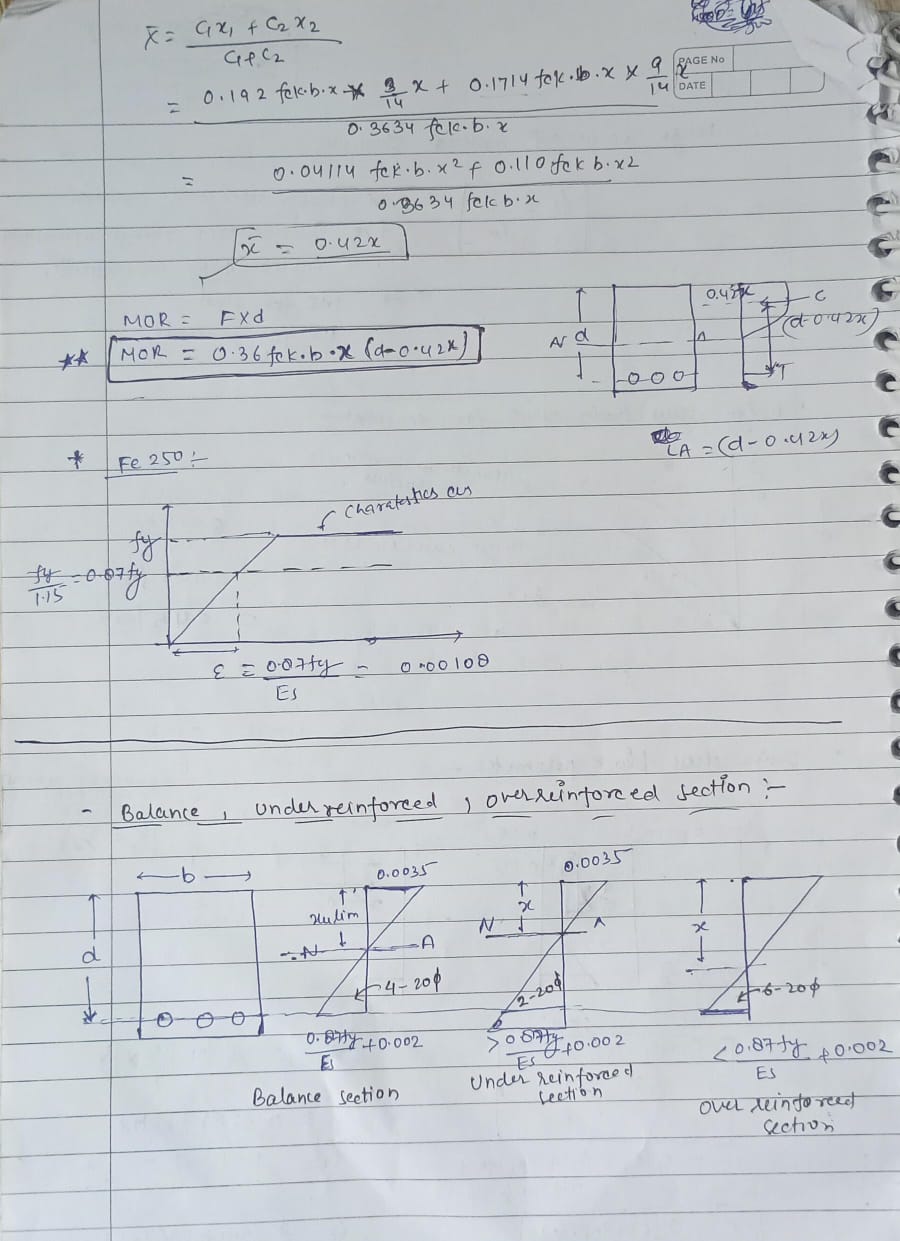 x̄ = C1x1 + C2x2 / C1+C2
PAGE No
DATE
= 0.192 fck.b.x × 3/14 x + 0.1714 fck.b.x × 9/14 x / 0.3634 fck.b.x
= 0.04114 fck.b.x² + 0.110 fck b.x2 / 0.3634 fck b.x
x̄ = 0.42x
MOR = F×d
** MOR = 0.36 fck.b.x (d-0.42x)
N d A
0.42x C
(d-0.42x)
T
LA = (d-0.42x)
* Fe 250 :-
fy
fy/1.15 = 0.87fy
ε = 0.87fy/Es = 0.00108
- Balance, under reinforced, over reinforced section :-
b
d
0.0035
xulim
N A
4-20ϕ
0.87fy/Es +0.002
Balance section
0.0035
x
N A
2-20ϕ
> 0.87fy/Es +0.002
Under reinforced
section
x
6-20ϕ
< 0.87fy/Es +0.002
over reinforced
section